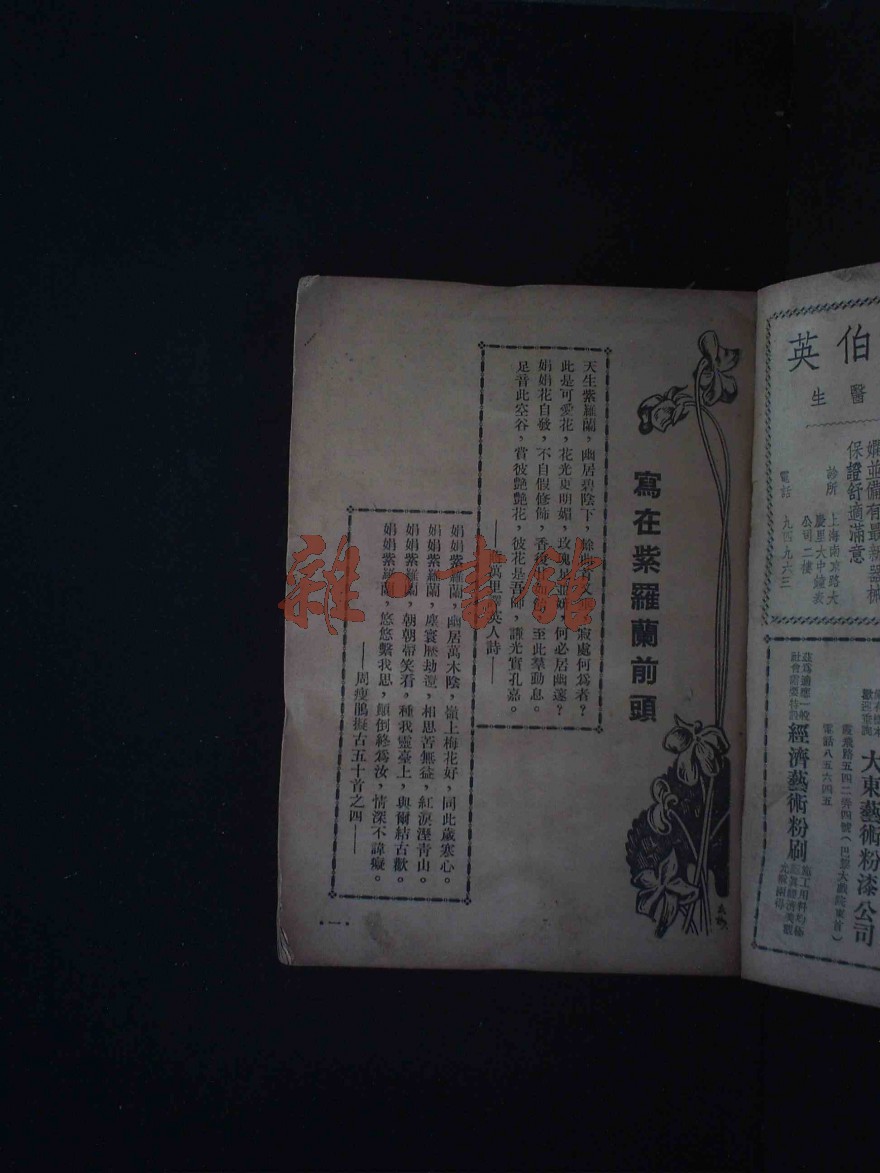 寫在紫羅蘭前頭
天生紫羅蘭，幽居碧陰下，
寂處何爲者？
此是可愛花，花光東明媚，玫瑰
何必居幽邃？
娟娟花自發，不自假修飾，香
至此羣動息。
足音此空谷，賞彼艷艷花，彼花是吾師，謙光實孔嘉。
英人詩——
娟娟紫羅蘭，幽居萬木陰，嶺上梅花好，同此歲寒心。
娟娟紫羅蘭，塵寰歷劫還，相思苦無益，紅淚溼青山。
娟娟紫羅蘭，朝朝帶笑看，種我靈臺上，與爾結古歡。
娟娟紫羅蘭，悠悠繫我思，顛倒終爲汝，情深不諱癡。
——周瘦鵑擬古五十首之四——
·一·
伯英
醫生
嫻並備有最新器械
保證舒適滿意
診所
上海南京路大
慶里大中鐘表
公司二樓
電話 九四九六三
大東藝術粉漆公司
霞飛路五四二弄四號（巴黎大戲院東首）
電話八五六四五
茲爲適應一般
社會需要特設
經濟藝術粉刷
雜·書館